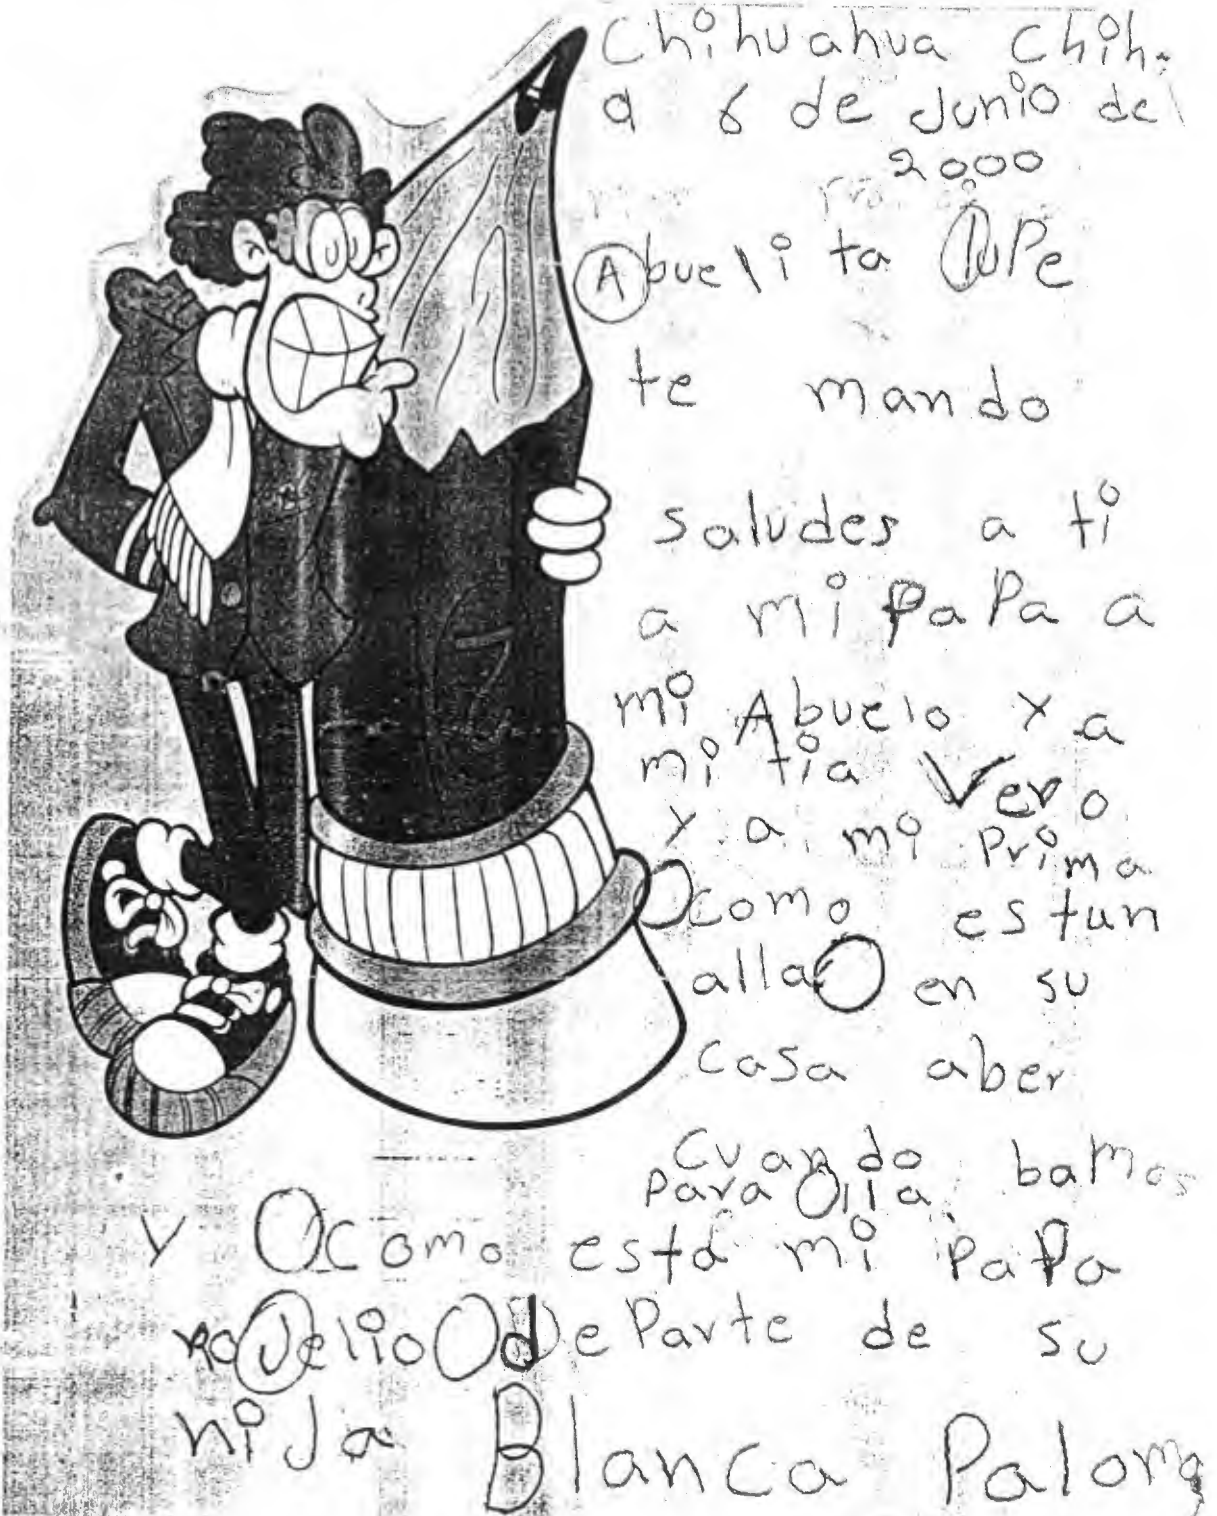 Chihuahua Chih.
a 6 de Junio del
2000
Abuelita lupe
te mando
saludes a ti
a mi papa a
mi Abuelo y a
mi tia Vero
y a mi prima
como estan
alla en su
casa aber
cuando bamos
para alla
y como está mi papa
rogelio de parte de su
hija Blanca Paloma